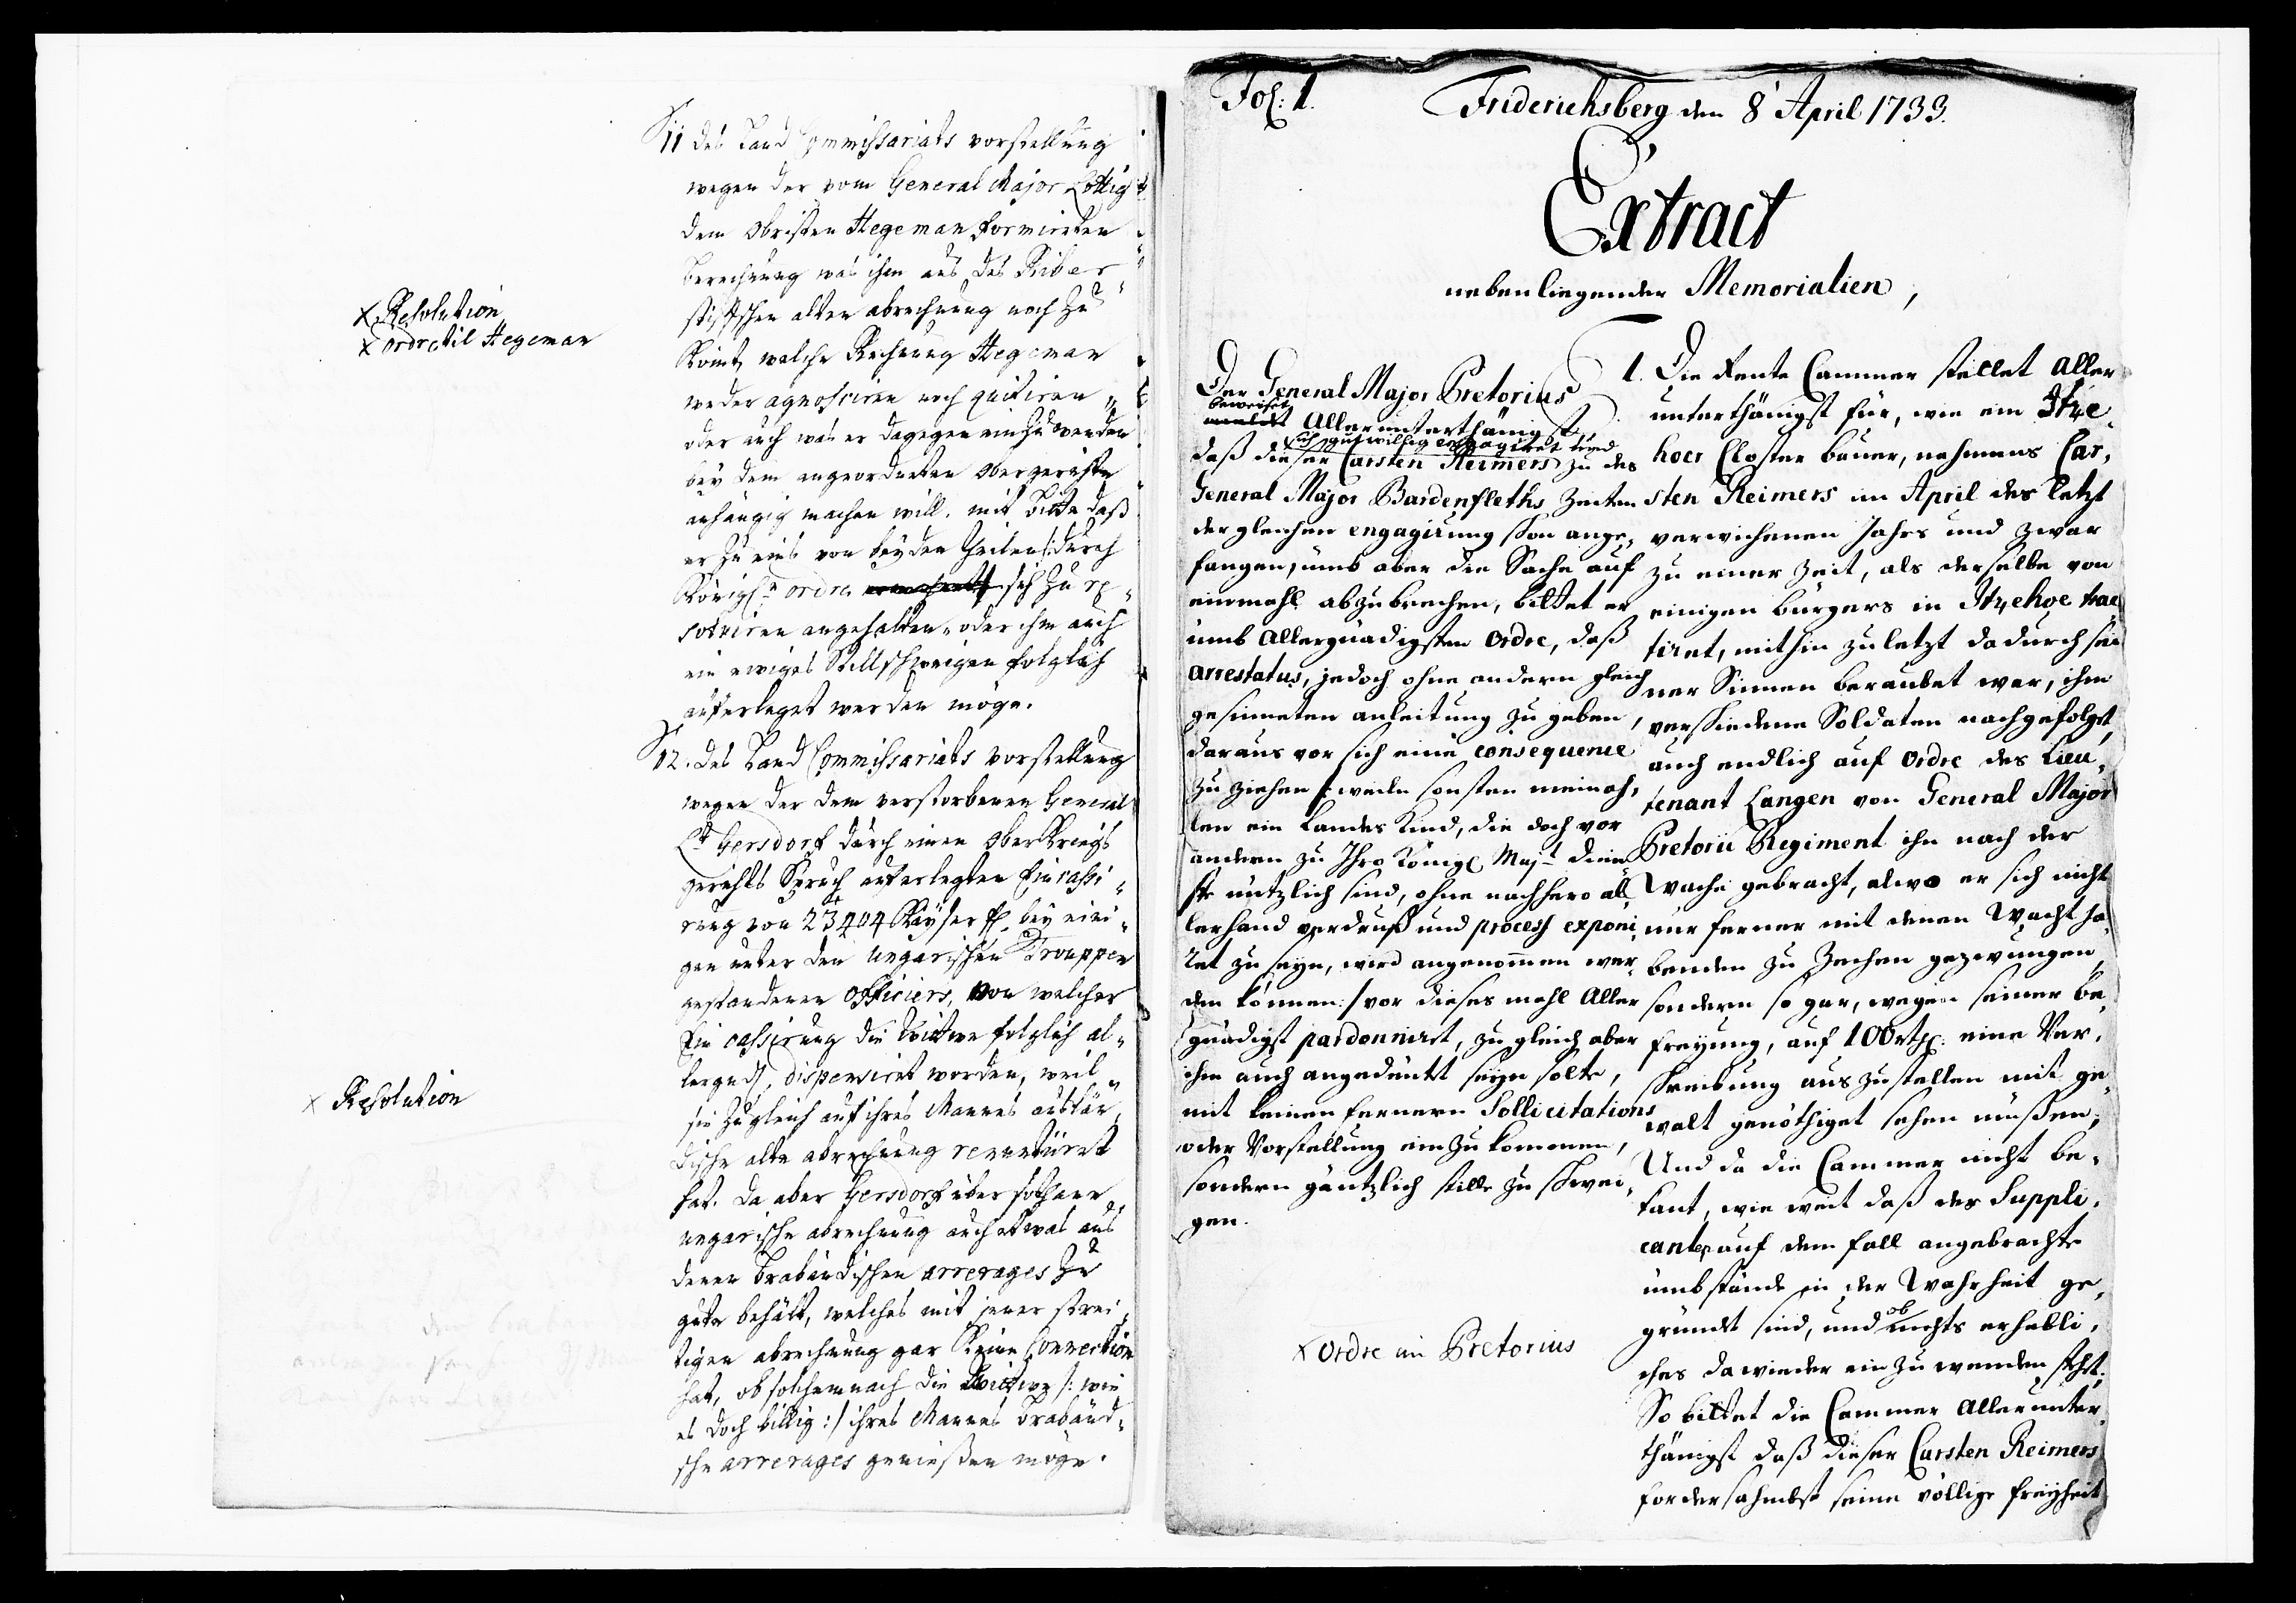 11 des Land Commissariats vorstellung
wegen der vom General Major Löttig
dem Obristen Hegeman formirten
berechnung was ihm aus des Riber
stifftschen alten abrechnung noch zu
kömt, welche Rechnung Hegeman
weder agnosciren noch quitiren
oder auch was er dagegen einzuwenden
beÿ dem angeordneten Obergerichte
anhängig machen will. mit Bitte daß
er zu eins von beÿden theilen /: durch
Königl. ordre sich zu re
solviren angehalten, oder ihm auch
ein ewiges Stillschweigen folglich
auferleget werden möge.
X Resolution
X ordre til Hegeman
12. des Land Commissariats vorstellung
wegen der dem verstorbenen General
Lt Gersdorf durch einen Ober Kriegs
gerichts Spruch auferlegten Eincassi
rung von 23404 Kaÿser fl. beÿ eini
gen unter den ungarischen Trouppen
gestandenen Officiers, von welcher
Ein cassirung die Wittwe folglich al
lergndst. dispensiret worden, weil
sie zugleich auf ihres Mannes auslän
dische alte abrechnung renuntiiret
hat. Da aber Gersdorf über sothane
ungarische abrechnung auch etwas aus
denen Brabandischen arrerages zu
gute behält, welches mit jener strei
tigen abrechnung gar keine Connection
hat, ob solchemnach die Wittwe /: wie
es doch billig :/ ihres Mannes Braband
sche arrerages genießen möge.
X Resolution
Fol: 1.
Friderichsberg den 8 April 1733.
Extract
nebenliegender Memorialien,
Der General Major Pretorius
beweiset
meldet Allerunterthänigst,
sich gutwillig engagiret und
daß dieser Carsten Reimers zu des
General Major Bardenfleths Zeiten
dergleichen engagirung schon ange,
fangen, umb aber die Sache auf
einmahl abzubrechen, bittet er
umb Allergnädigsten Ordre, daß
Arrestatus, jedoch ohne andern gleich
gesinneten anleitung zu geben,
daraus vor sich eine consequence
zu ziehen /: weile sonsten niemah,
len ein Landes Kind, die doch vor
andern zu Ihro Königl Majt dien
ste nützlich sind, ohne nachhero al
lerhand verdruß und process exponi
ret zu seyn, wird angenommen wer,
den können :/ vor dieses mahl Aller
gnädigst pardonniret, zugleich aber
ihm auch angedeutet seyn solte,
mit keinen fernern Sollicitations
oder Vorstellung einzukommen,
sondern gäntzlich stille zu schwei,
gen.
X Ordre an Pretorius
1. Die Rente Cammer stellet Aller
unterthänigst für, wie ein Itze,
hoer Closter Bauer, nahmens Car,
sten Reimers im April des letzt
verwichenen Jahrs und zwar
zu einer Zeit, als derselbe von
einigen Bürgers in Itzehoe trac
tiret, mithin zuletzt dadurch sei
ner Sinnen beraubet war, ihm
verschiedene Soldaten nachgefolget,
auch endlich auf Ordre des Lieu,
tenant Langen von General Major
Pretorii Regiment ihn nach der
Wache gebracht, alwo er sich nicht
nur ferner mit denen Wacht ha
benden zu Zechen gezwungen,
sondern so gar, wegen seiner be,
freyung, auf 100 rth: eine Ver,
schreibung auszustellen mit ge,
walt genöthiget sehen müßen;
Und da die Cammer nicht be,
kant, wie weit daß des Suppli,
cantes auf dem fall angebrachte
umbstände in der Wahrheit ge,
ob
gründet sind, und nichts erhebli,
ches dawieder einzuwenden stehet;
So bittet die Cammer Allerunter,
thänigst daß dieser Carsten Reimers
fordersahmbst seine völlige freyheit